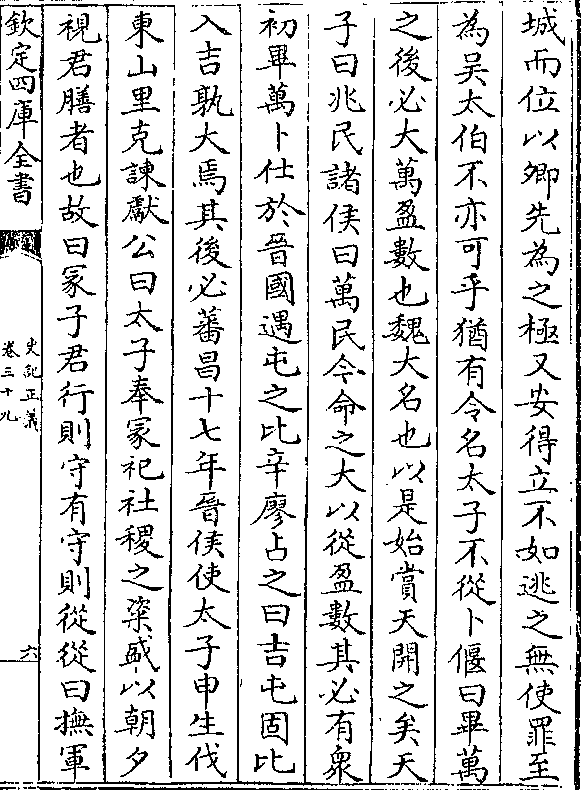 城而位以卿先為之極又安得立不如逃之無使罪至
為吳太伯不亦可乎猶有令名太子不從卜偃曰畢萬
之後必大萬盈數也魏大名也以是始賞天開之矣天
子曰兆民諸侯曰萬民今命之大以從盈數其必有衆
初畢萬卜仕於晉國遇屯之比辛廖占之曰吉屯固比
入吉孰大焉其後必蕃昌十七年晉侯使太子申生伐
東山里克諫獻公曰太子奉冢祀社稷之粢盛以朝夕
視君膳者也故曰冢子君行則守有守則從從曰撫軍
欽定四庫全書
史記正義
卷三十九
六